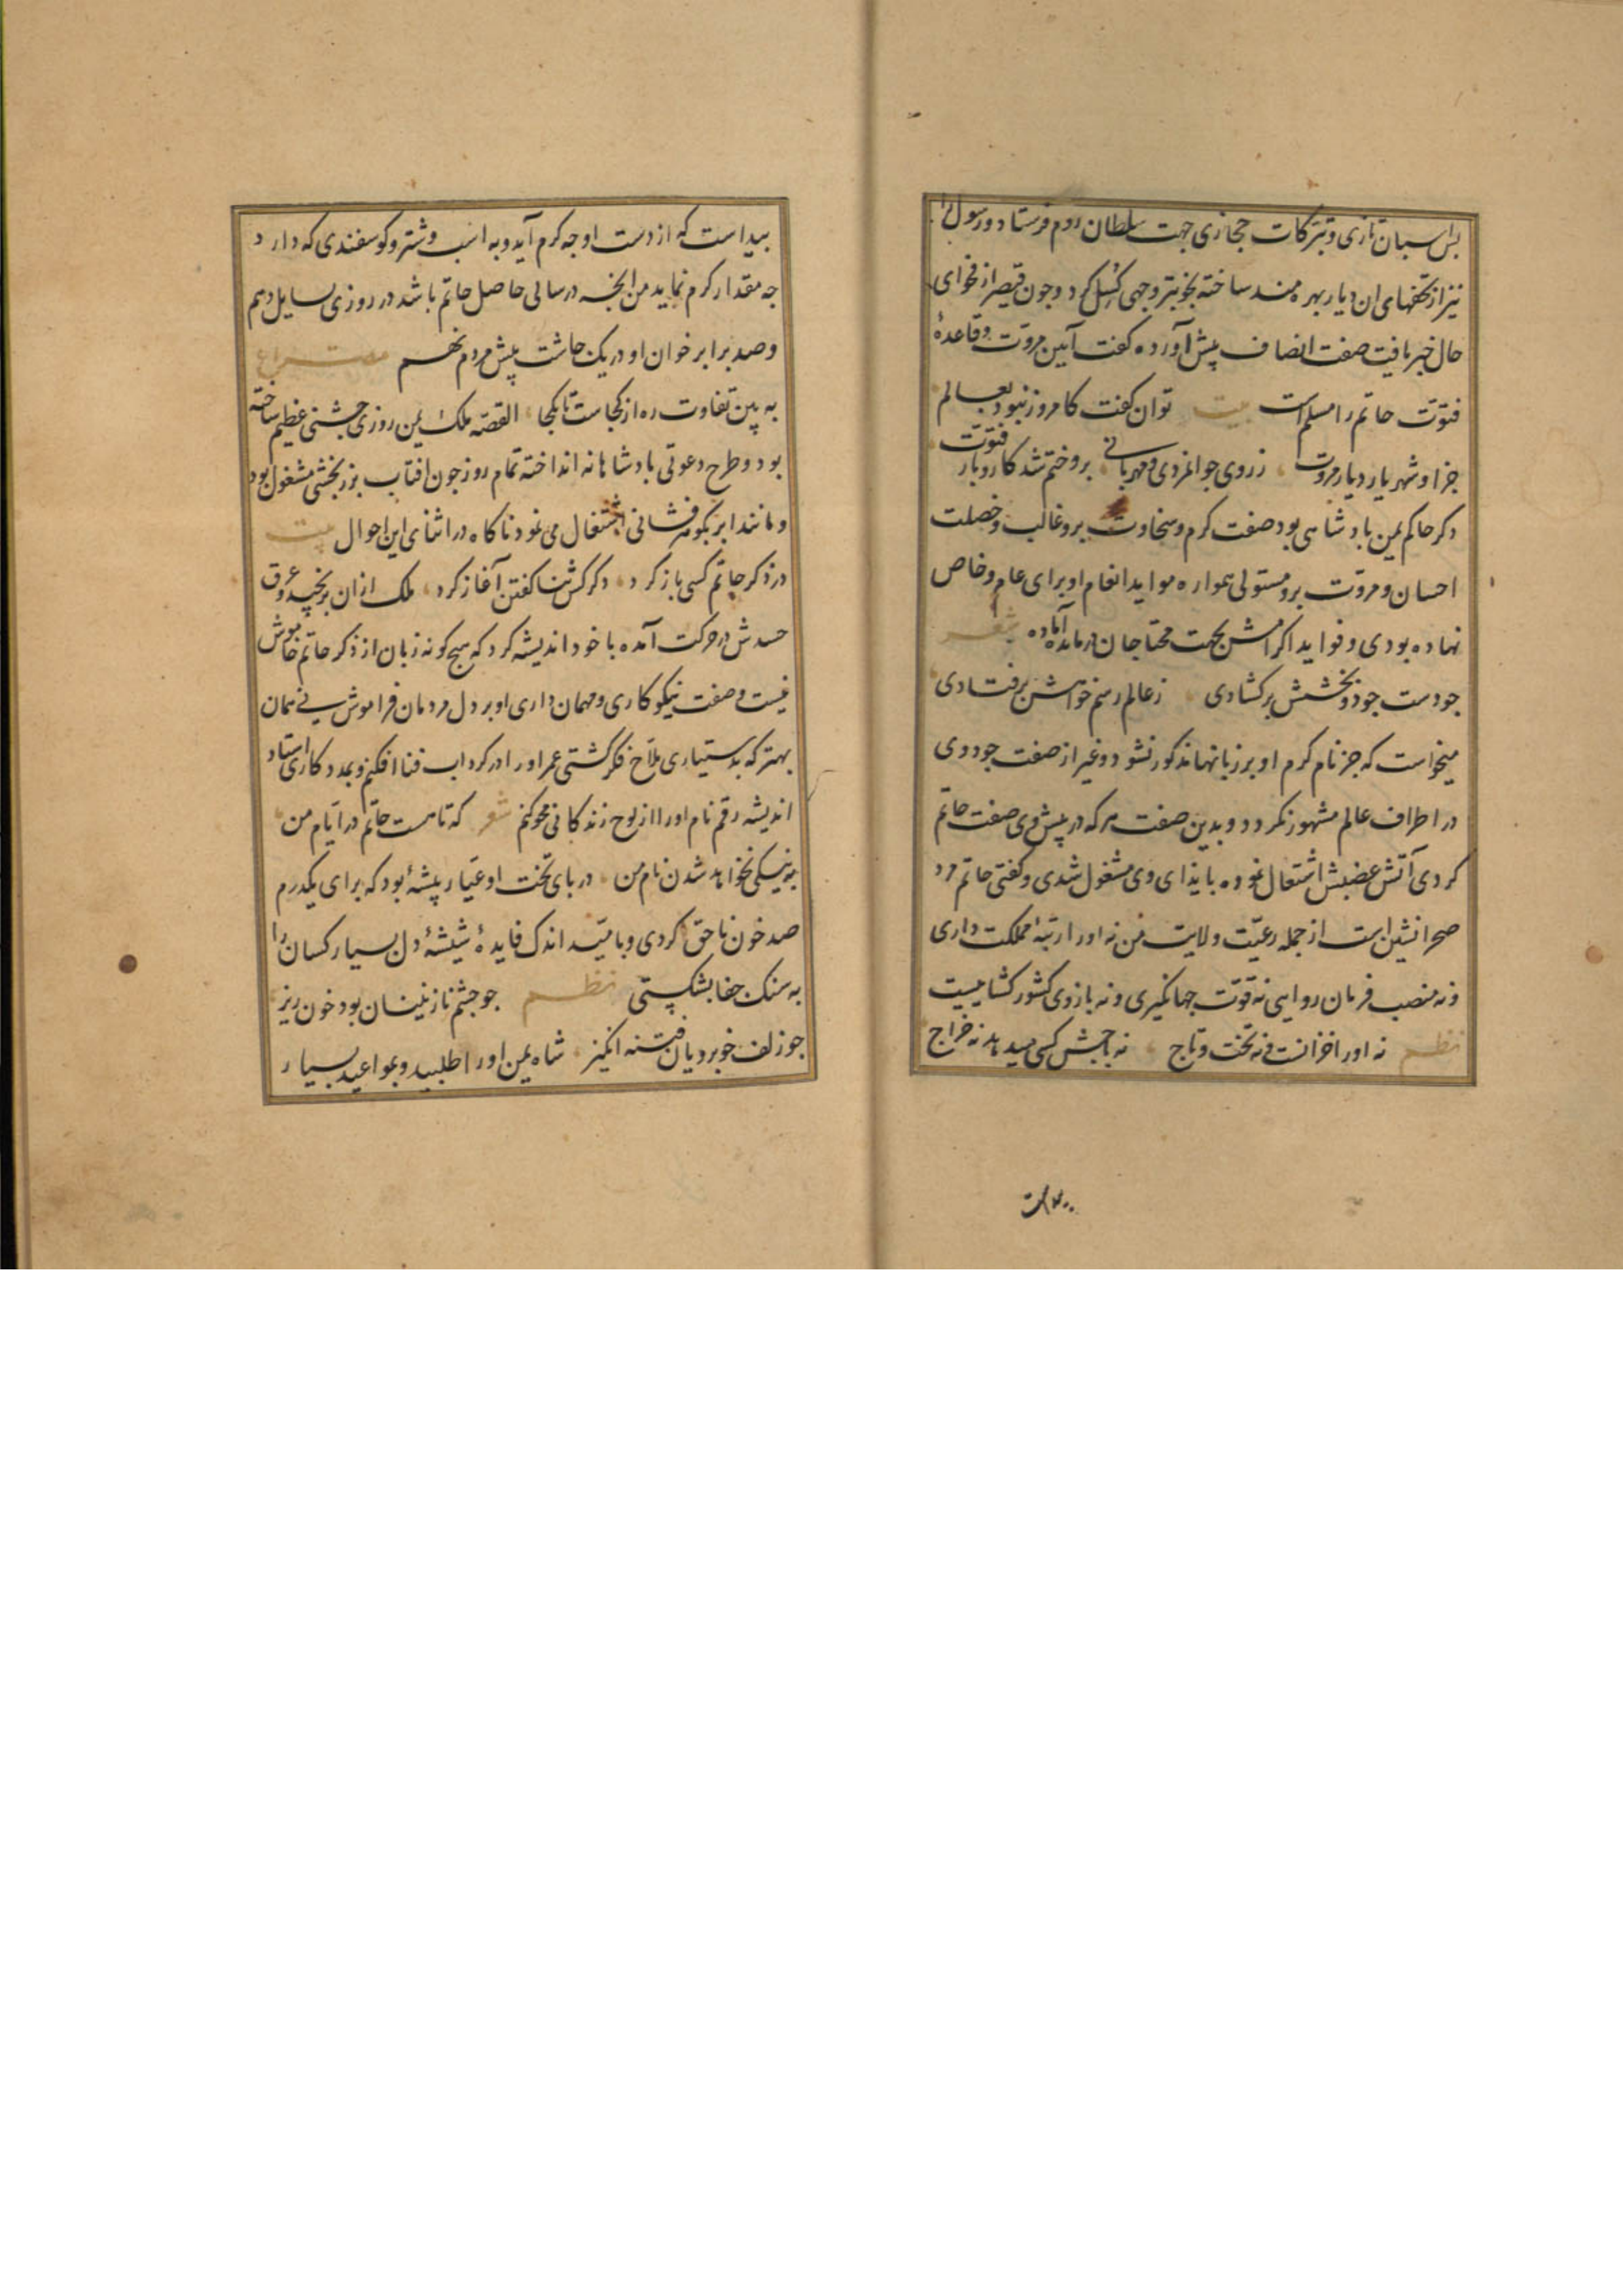 بر اسبان تازی و تبرکات حجازی جهت سلطان روم فرستاد و رسول را
نیز از تحفهای ان دیار بهره مند ساخته بخوبتر وجهی کسل کرد و جون قیصر از فحوای
حال خبر یافت صفت انصاف پیش آورده کفت آیین مروت و قاعدهٔ
فتوّت حاتم را مسلم است بیت توان کفت کامروز نبود بعالم
جز او شهریار دیار مروت زروی جوانمردی و مهربانی برو ختم شد کاروبار فتوّت
دکر حاکم یمن بادشاهی بود صفت کرم و سخاوت برو غالب و خصلت
احسان و مروّت برو مستولی همواره مواید انعام او برای عام و خاص
نهاده بودی و فواید اکرامش بجهت محتاجان درمانده آماده شعر
جو دست جود و بخشش برکشادی زعالم رسم خواهش برفتادی
میخواست که جز نام کرم او بر زبانها مذکور نشود و غیر از صفت جود وی
در اطراف عالم مشهور نکردد و بدین صفت هرکه در پیش وی صفت حاتم
کردی آتش غضبش اشتعال نموده بایذای وی مشغول شدی و کفتی حاتم مرد
صحرانشین است از جمله رعیّت ولایت من نه اورا رتبهٔ مملکت داری
و نه منصب فرمان روایی نه قوّت جهانکیری و نه بازوی کشور کشاییست
نظم نه اورا خزانست و نه تخت و تاج نه باجش کسی میدهد نه خراج
بیداست که از دست او جه کرم آید و به اسب و شتر و کوسفندی که دارد
جه مقدار کرم نماید من انجه در سالی حاصل حاتم باشد در روزی بسایل دهم
و صد برابر خوان او در یک جاشت پیش مردم نهم مصراع
به بین تفاوت ره از کجاست تا بکجا القصّه ملک یمن روزی جشنی عظیم ساخته
بود و طرح دعوتی بادشاهانه انداخته تمام روز جون افتاب بزر بخشی مشغول بود
و مانند ابر بکوهر فشانی اشتغال می نمود ناکاه در اثنای این احوال بیت
در ذکر حاتم کسی باز کرد دکر کس ثنا کفتن آغاز کرد ملک ازان برنجید و عرق
حسدش در حرکت آمده با خود اندیشه کرد که هیج کونه زبان از ذکر حاتم خاموش
نیست و صفت نیکوکاری و مهمان داری او بر دل مردمان فراموش نی همان
بهتر که بدستیاری ملّاح فکر کشتی عمر اورا در کرداب فنا افکنم و بمدد کاری استاد
اندیشه رقم نام اورا از لوح زندکانی محو کنم شعر که تا هست حاتم در ایّام من
به نیکی نخواهد شدن نام من در بای تخت او عیّار پیشهٔ بود که برای یکدرم
صد خون ناحق کردی و بامّید اندک فایدهٔ شیشهٔ دل بسیار کسان را
به سنک جفا بشکستی نظم جو جشم نازنینان بود خون ریز
جو زلف خوبرویان فتنه انکیز شاه یمن اورا طلبید و بمواعید بسیار